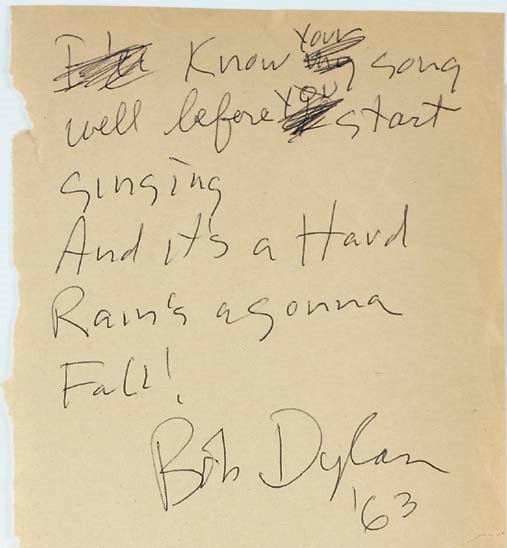 Know your song
well before you start
singing
And it's a Hard
Rain's agonna
Fall!
Bob Dylan
'63